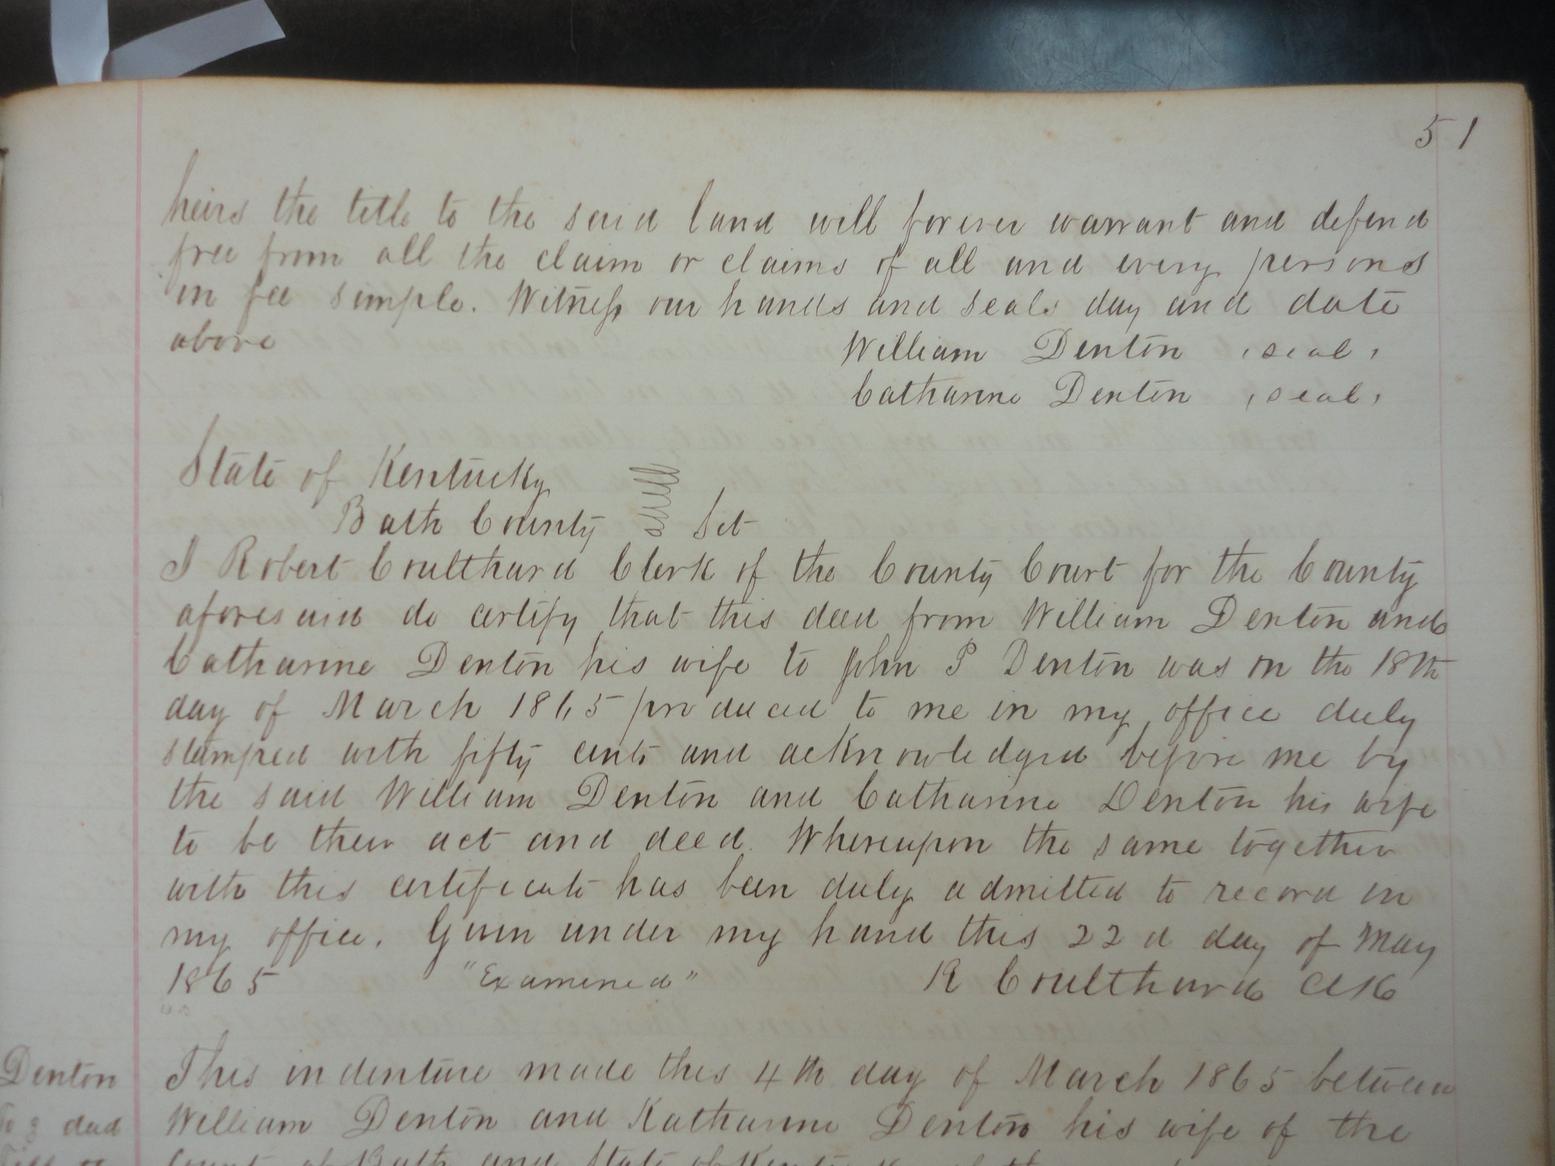 51
heirs the title to the said land will forever warrant and defend
free from all the claim or claims of all and every persons
in fee simple. Witness our hands and seals day and date
above William Denton (seal)
Catharine Denton (seal)
State of Kentucky
Bath County Sct
I Robert Coulthard Clerk of the County Court for the County
aforesaid do certify that this deed from William Denton and
Catharine Denton his wife to John P Denton was on the 18th
day of March 1865 produced to me in my office duly
stamped with fifty cents and acknowledged before me by
the said William Denton and Catharine Denton his wife
to be their act and deed. Whereupon the same together
with this certificate has been duly admitted to record in
my office. Given under my hand this 22d day of May
1865 "Examined" R Coulthard Clk
Denton This indenture made this 4th day of March 1865 between
To deed William Denton and Katharine Denton his wife of the
County of Bath and State of